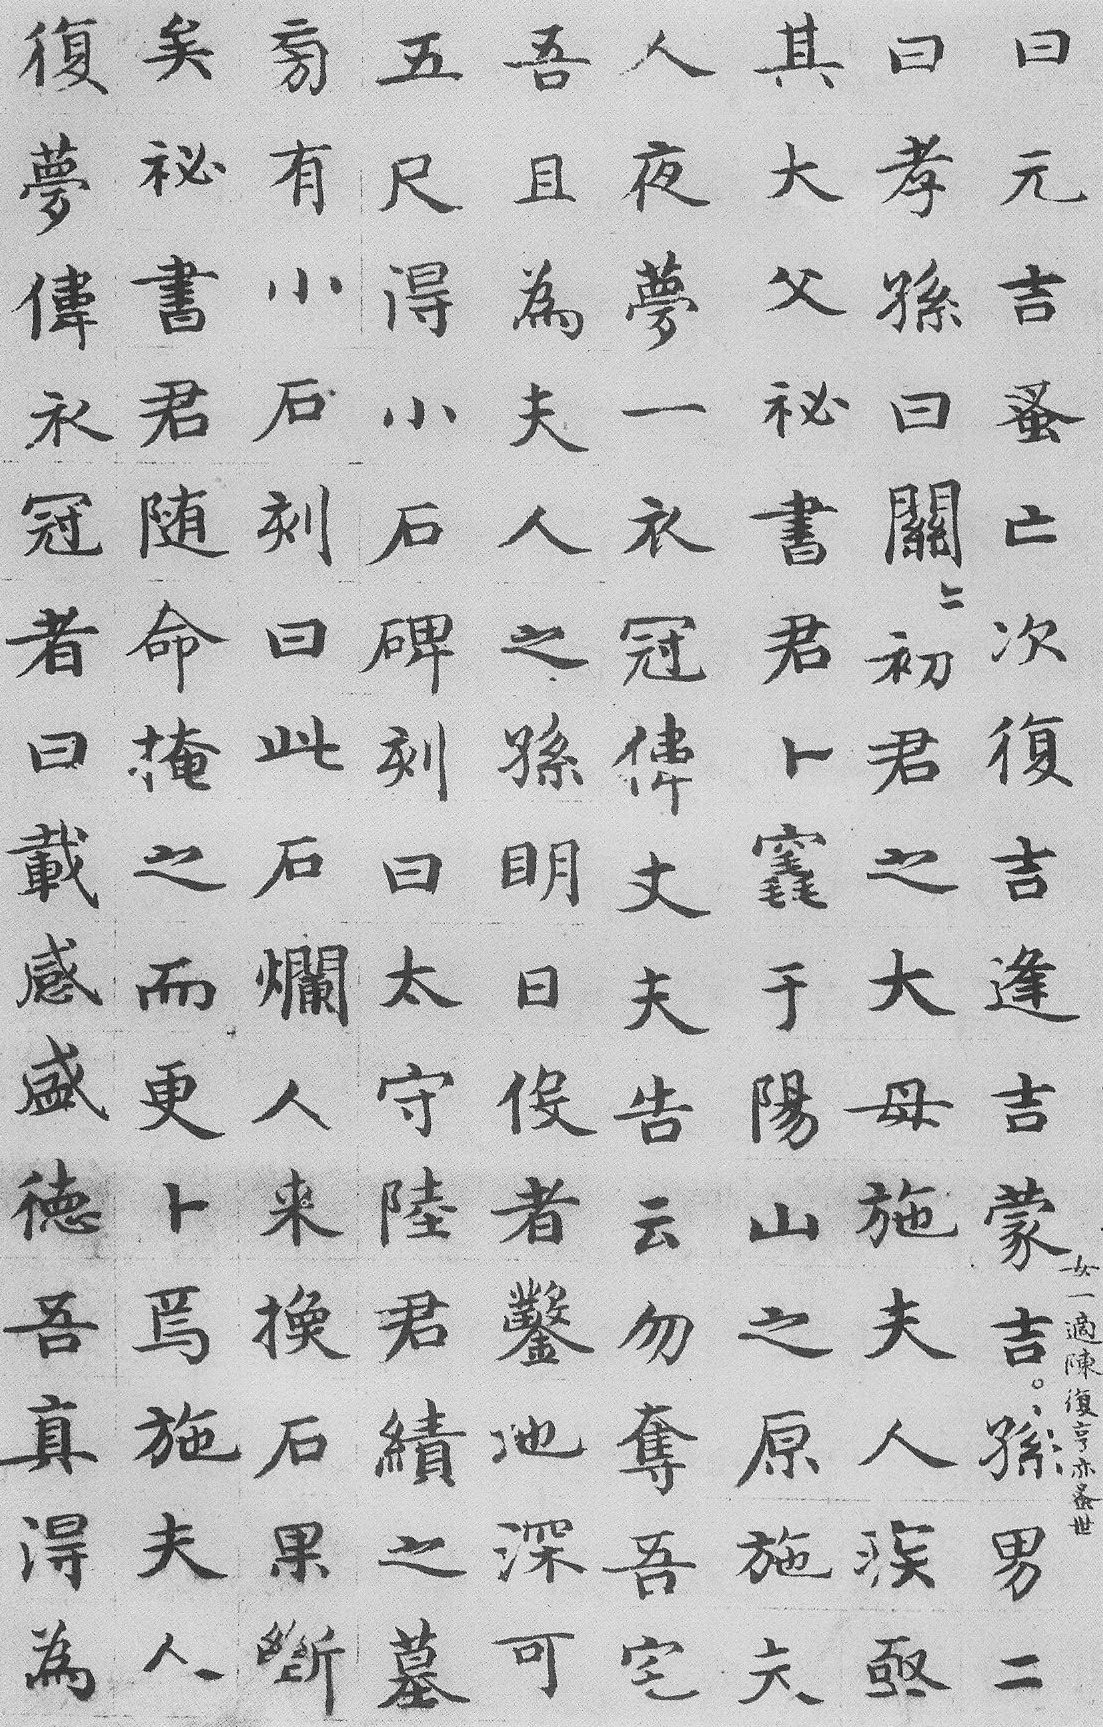 曰元吉蚤亡次復吉逢吉蒙吉孫男二
女一適陳復亨亦蚤世
曰孝孫曰關初君之大母施夫人疾亟
其大父祕書君卜竁于陽山之原施夫
人夜夢一衣冠偉丈夫告云勿奪吾宅
吾且為夫人之孫明日役者鑿池深可
五尺得小石碑刻曰太守陸君績之墓
旁有小石刻曰此石爛人来換石果斷
矣祕書君随命掩之而更卜焉施夫人
復夢偉衣冠者曰載感盛德吾真得為